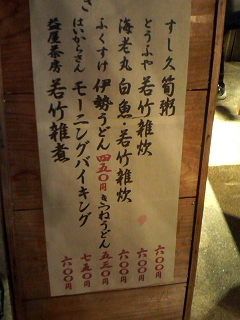 すし久 筍粥 六〇〇円
とうふや 若竹雑炊 六〇〇円
海老丸 白魚・若竹雑炊 六〇〇円
ふくすけ 伊勢うどん 四五〇円 きつねうどん 五五〇円
はいからさん モーニングバイキング 七五〇円
益屋茶房 若竹雑煮 六〇〇円